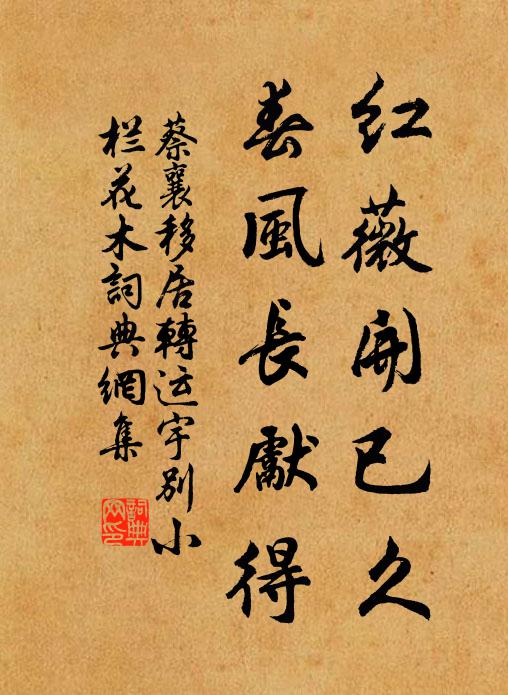 红薇開已久
春風長獻得
蔡襄移居轉运宇别小
栏花木詞典網集
詞典网印